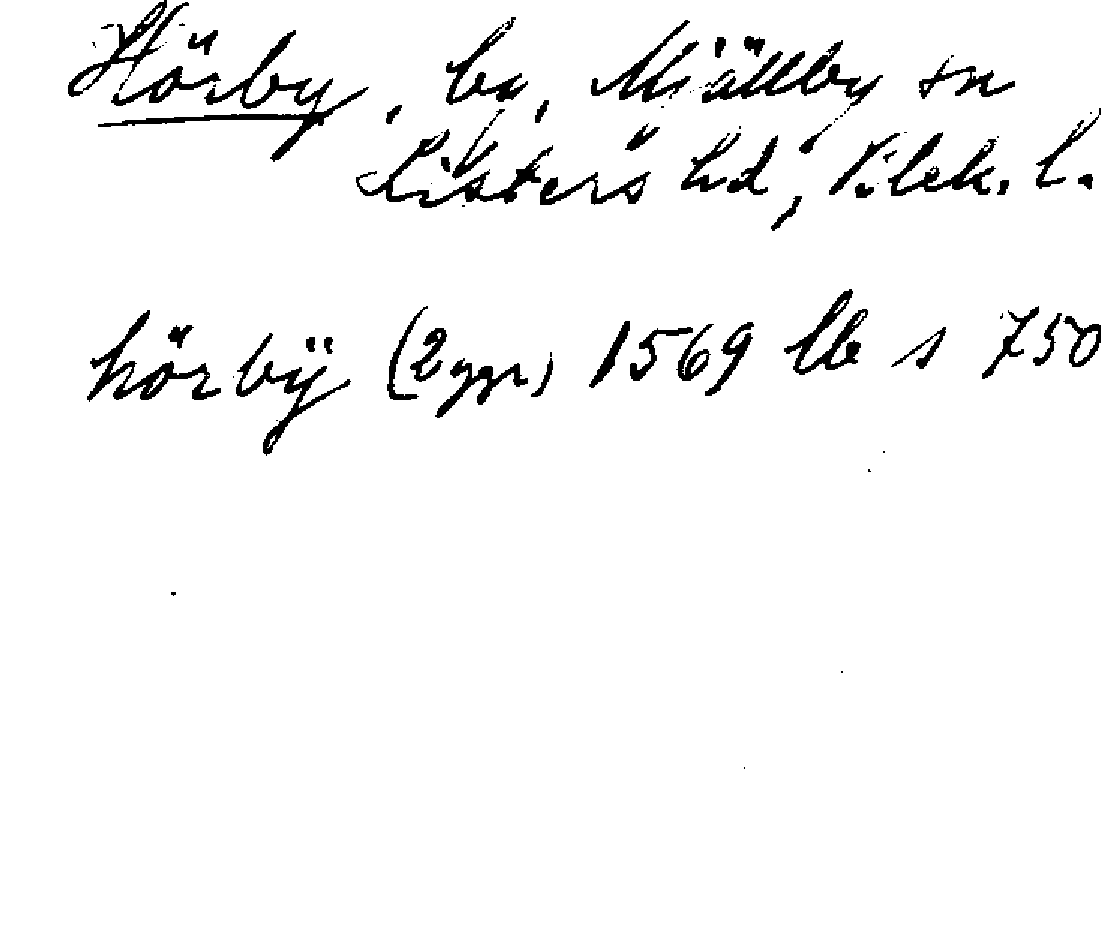 Hörby, by, Mjällby sn
Listers hd, Blek. l.
hörbÿ (2 ggr) 1569 lb s 750